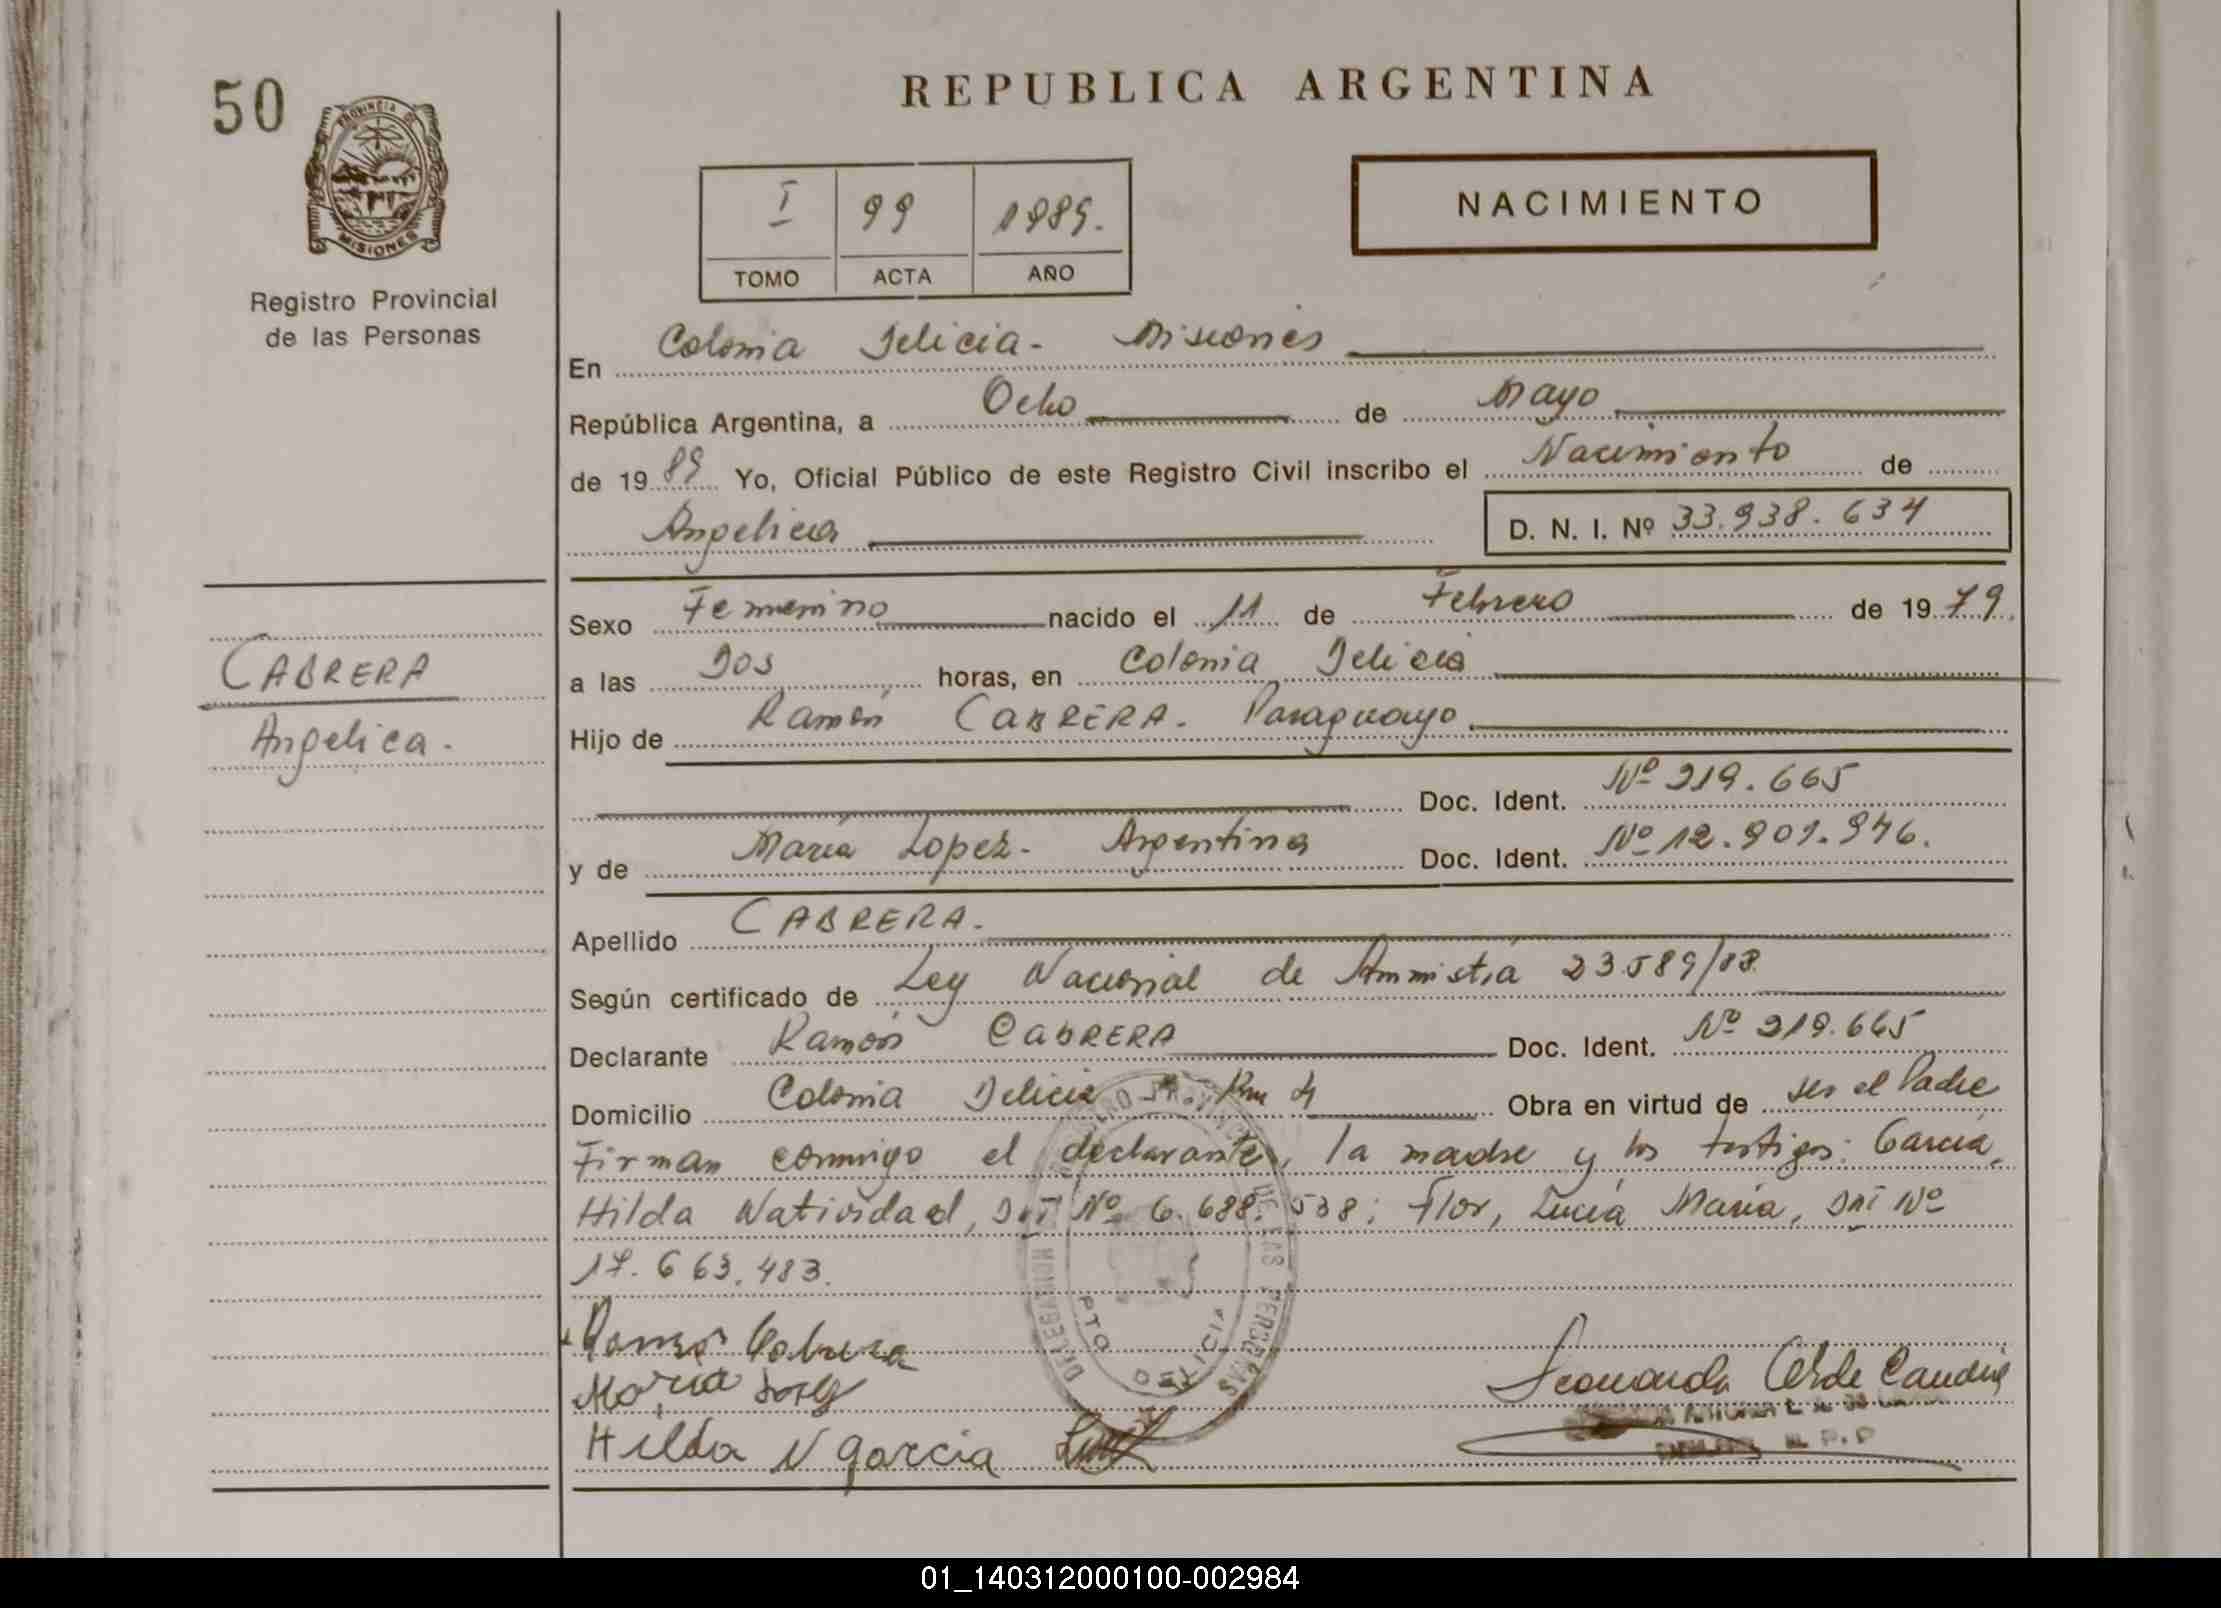 50
PROVINCIA DE
MISIONES
Registro Provincial
de las Personas
REPUBLICA ARGENTINA
I 99 1989.
TOMO ACTA AÑO
NACIMIENTO
En Colonia Delicia - Misiones
República Argentina, a Ocho de Mayo
de 19 89 Yo, Oficial Público de este Registro Civil inscribo el Nacimiento de
Angelica D. N. I. Nº 33.938.634
Sexo Femenino nacido el 11 de Febrero de 19 79.
a las Dos horas, en Colonia Delicia
Hijo de Ramón CABRERA. Paraguayo
Doc. Ident. Nº 219.665
y de María Lopez - Argentina Doc. Ident. Nº 12.901.946.
Apellido CABRERA.
Según certificado de Ley Nacional de Ammistía 23.589/88
Declarante Ramón CABRERA Doc. Ident. Nº 219.665
Domicilio Colonia Delicia Km 4 Obra en virtud de ser el Padre
Firman conmigo el declarante, la madre y los testigos: García,
Hilda Natividad, DNI Nº 6.688.538; Flor, Lucía María, DNI Nº
17.663.483.
CABRERA
Angelica.
Hilda N garcia
PTO DELICIA
01_140312000100-002984